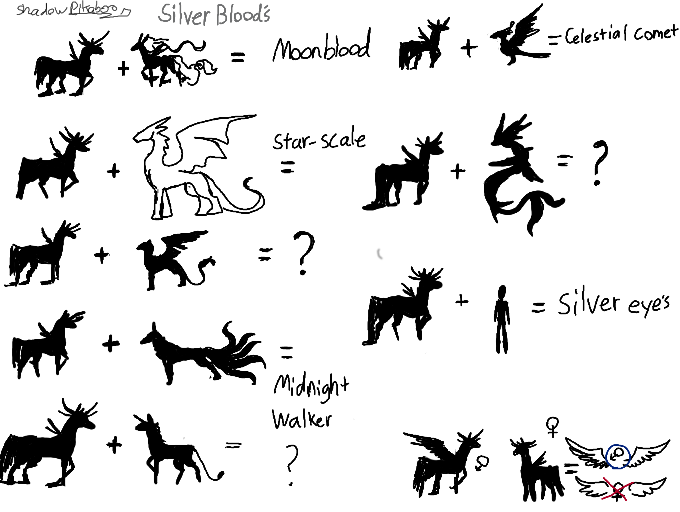 shadow Pikaboo
Silver Blood's
+ = Moonblood
+ = Celestial comet
+ = star-scale
+ = ?
+ = ?
+ = Silver eye's
+ = Midnight
Walker
+ = ?
♂ ♀ = ♂
♀